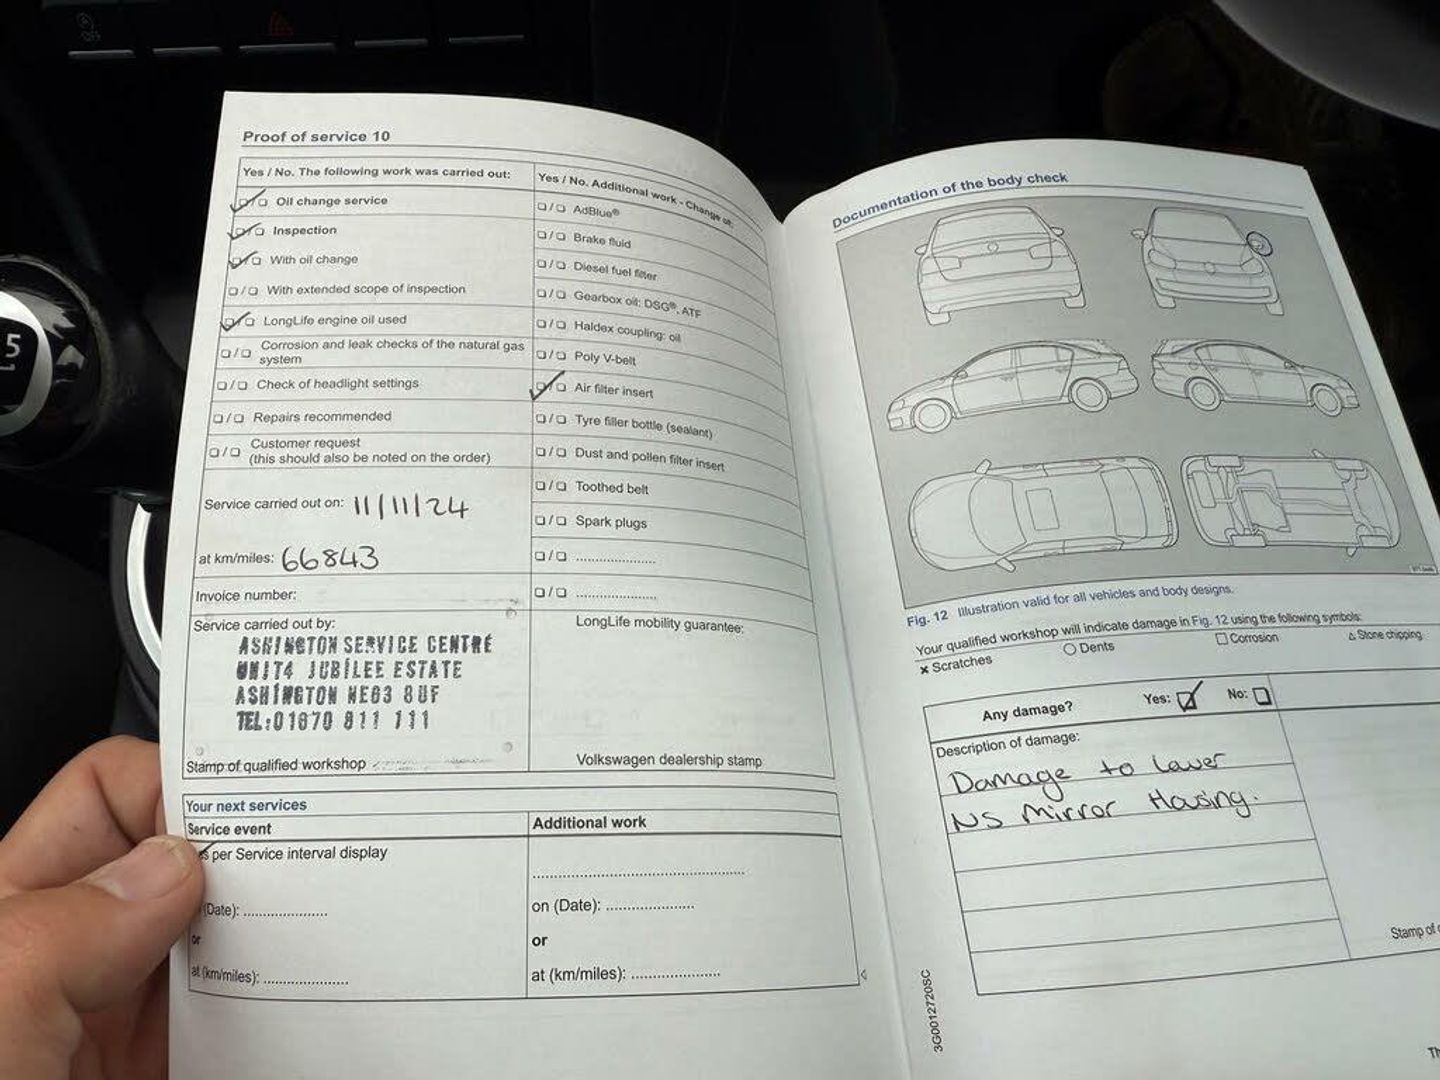 OFF
5
Proof of service 10
Yes / No. The following work was carried out:
❑/❑ Oil change service
❑/❑ Inspection
❑/❑ With oil change
❑/❑ With extended scope of inspection
❑/❑ LongLife engine oil used
❑/❑ Corrosion and leak checks of the natural gas
system
❑/❑ Check of headlight settings
❑/❑ Repairs recommended
❑/❑ Customer request
(this should also be noted on the order)
Service carried out on: 11/11/24
at km/miles: 66843
Invoice number:
Service carried out by:
ASHINGTON SERVICE CENTRE
UNIT4 JUBILEE ESTATE
ASHINGTON NE63 8UF
TEL:01670 811 111
Stamp of qualified workshop
Yes / No. Additional work - Change of:
❑/❑ AdBlue®
❑/❑ Brake fluid
❑/❑ Diesel fuel filter
❑/❑ Gearbox oil: DSG®, ATF
❑/❑ Haldex coupling: oil
❑/❑ Poly V-belt
❑/❑ Air filter insert
❑/❑ Tyre filler bottle (sealant)
❑/❑ Dust and pollen filter insert
❑/❑ Toothed belt
❑/❑ Spark plugs
❑/❑ ......................
❑/❑ ......................
LongLife mobility guarantee:
Volkswagen dealership stamp
Your next services
Service event
per Service interval display
(Date): ......................
or
at (km/miles): ......................
Additional work
......................................................
on (Date): ......................
or
at (km/miles): ......................
Documentation of the body check
Fig. 12 Illustration valid for all vehicles and body designs.
Your qualified workshop will indicate damage in Fig. 12 using the following symbols:
× Scratches ○ Dents □ Corrosion △ Stone chipping
Any damage? Yes: ☑ No: ❑
Description of damage:
Damage to Lower
NS Mirror Housing.
Stamp of
3G0012720SC
Th